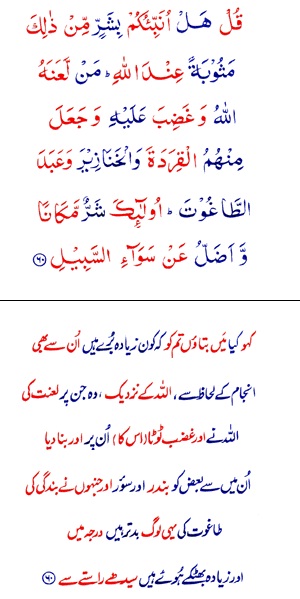 قُلْ هَلْ اُنَبِّئُكُمْ بِشَرٍّ مِّنْ ذٰلِكَ
مَثُوْبَةً عِنْدَ اللّٰهِ ؕ مَنْ لَّعَنَهُ
اللّٰهُ وَ غَضِبَ عَلَيْهِ وَ جَعَلَ
مِنْهُمُ الْقِرَدَةَ وَ الْخَنَازِيْرَ وَ عَبَدَ
الطَّاغُوْتَ ؕ اُولٰٓئِكَ شَرٌّ مَّكَانًا
وَّ اَضَلُّ عَنْ سَوَآءِ السَّبِيْلِ ۶۰
کہو کیا مَیں بتاؤں تم کو کہ کون زیادہ بُرے ہیں اُن سے بھی
انجام کے لحاظ سے، اللہ کے نزدیک ، وہ جن پر لعنت کی
اللہ نے اور غضب ٹوٹا (اس کا) اُن پر اور بنا دیا
اُن میں سے بعض کو بندر اور سؤر اور جنہوں نے بندگی کی
طاغوت کی یہی لوگ بدتر ہیں درجہ میں
اور زیادہ بھٹکے ہُوئے ہیں سیدھے راستے سے ۶۰